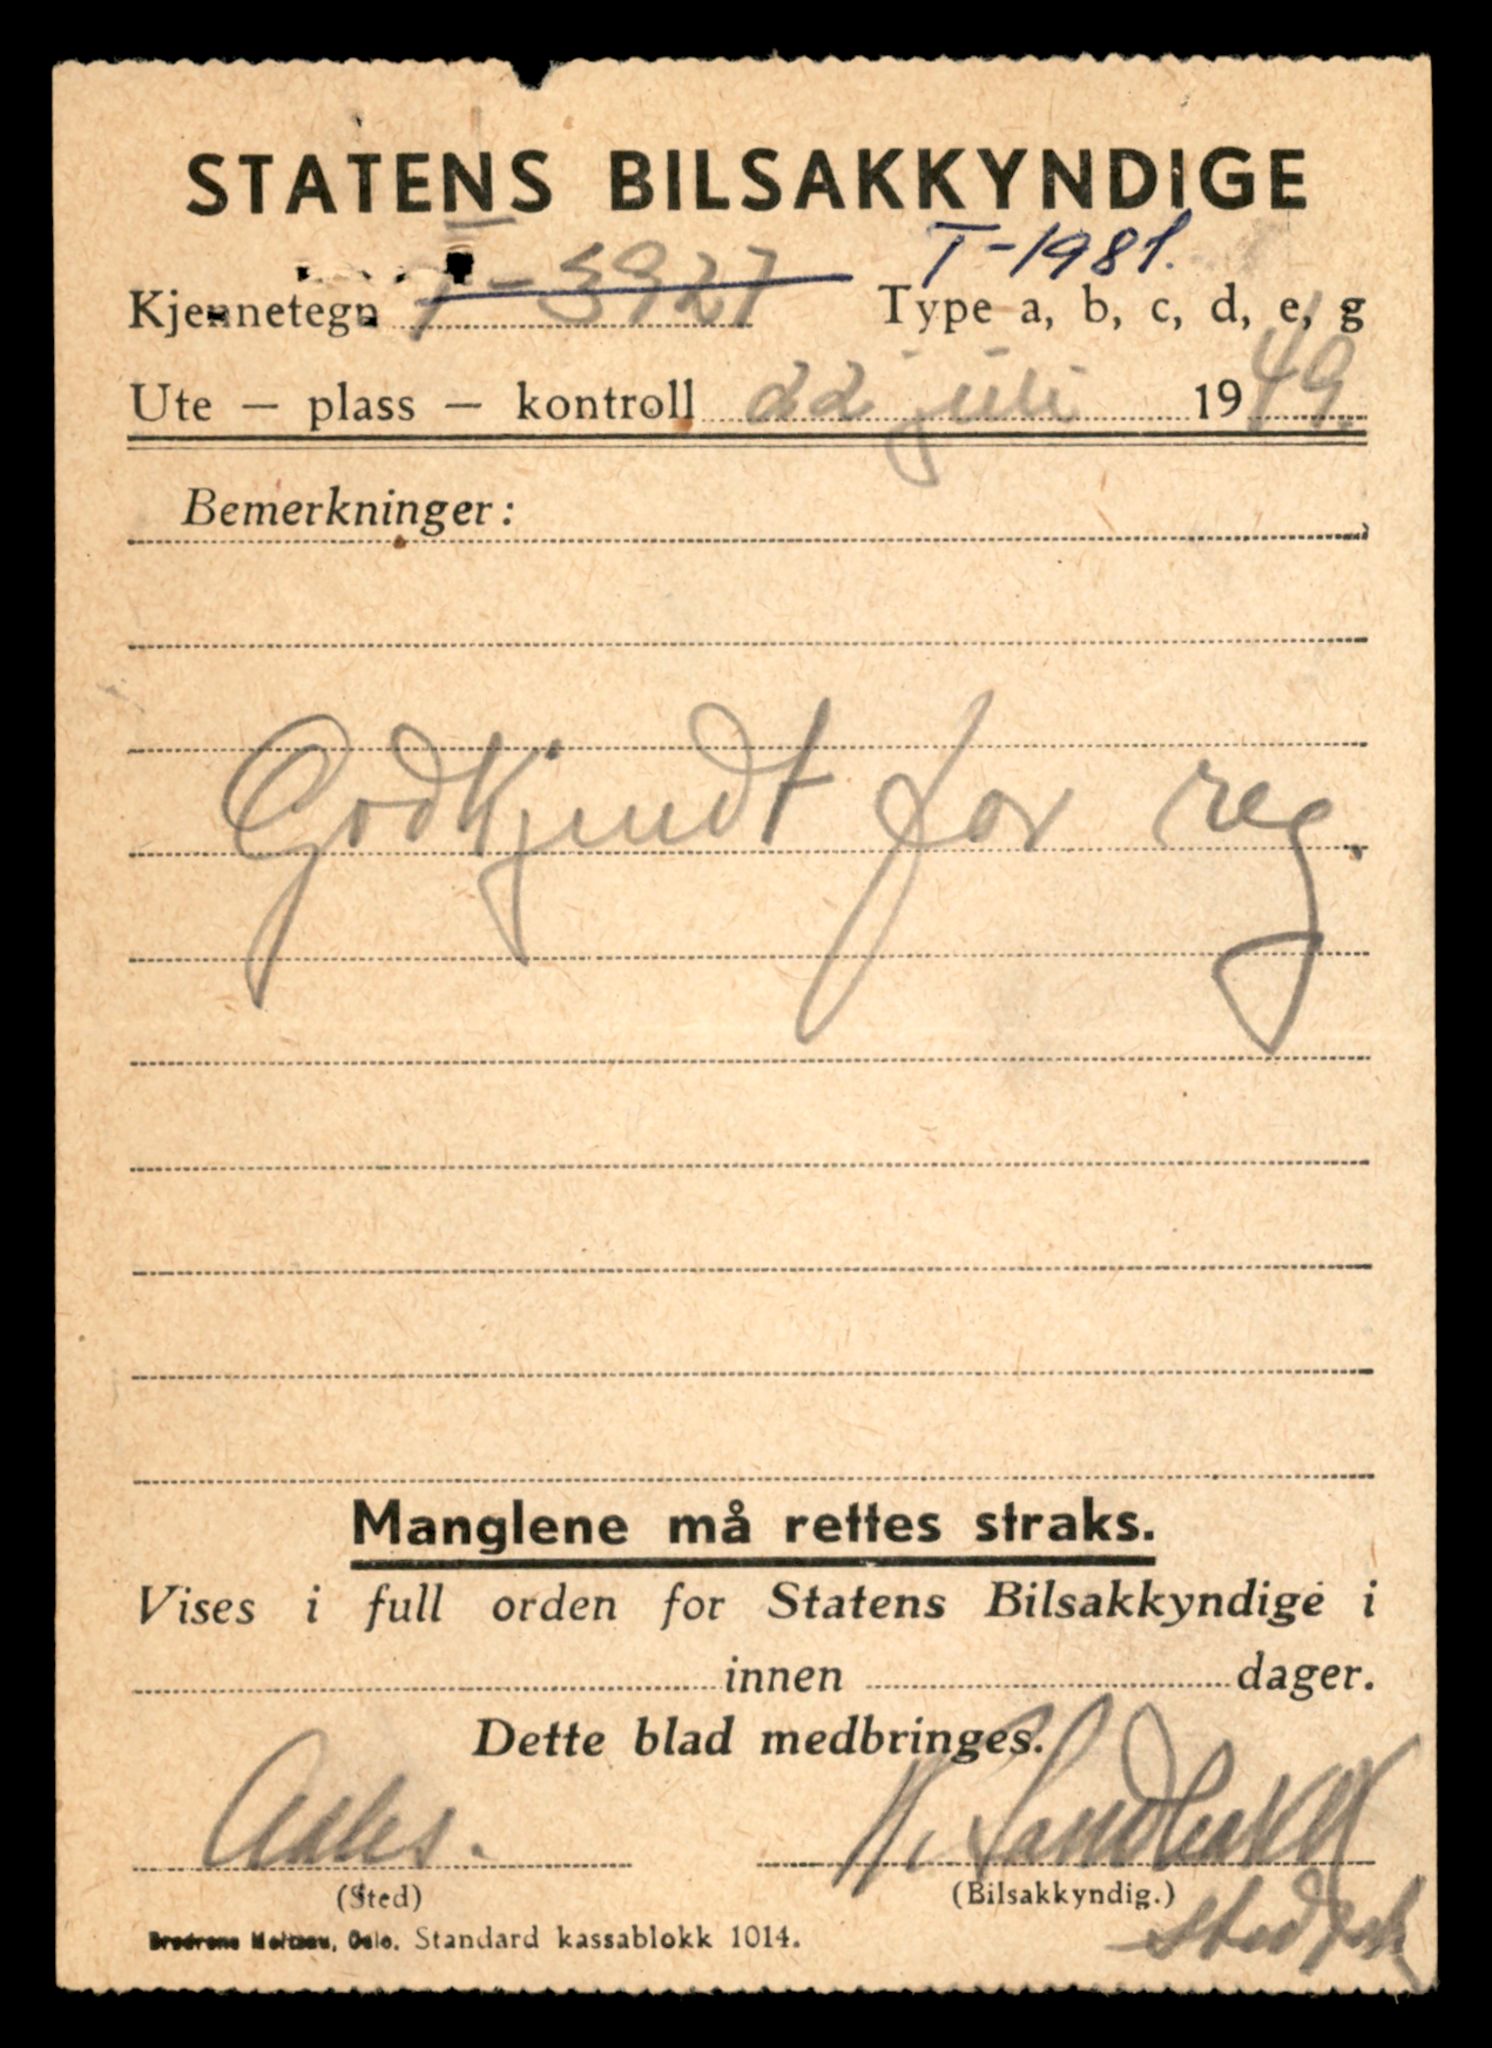 STATENS BILSAKKYNDIGE
T-1981.
Kjennetegn T-3927 Type a, b, c, d, e, g
Ute — plass — kontroll 22 juli 1949.
Bemerkninger:
Godkjendt for reg.
Manglene må rettes straks.
Vises i full orden for Statens Bilsakkyndige i
innen dager.
Dette blad medbringes.
(Sted) (Bilsakkyndig.)
Brødrene Moltzau, Oslo. Standard kassablokk 1014.